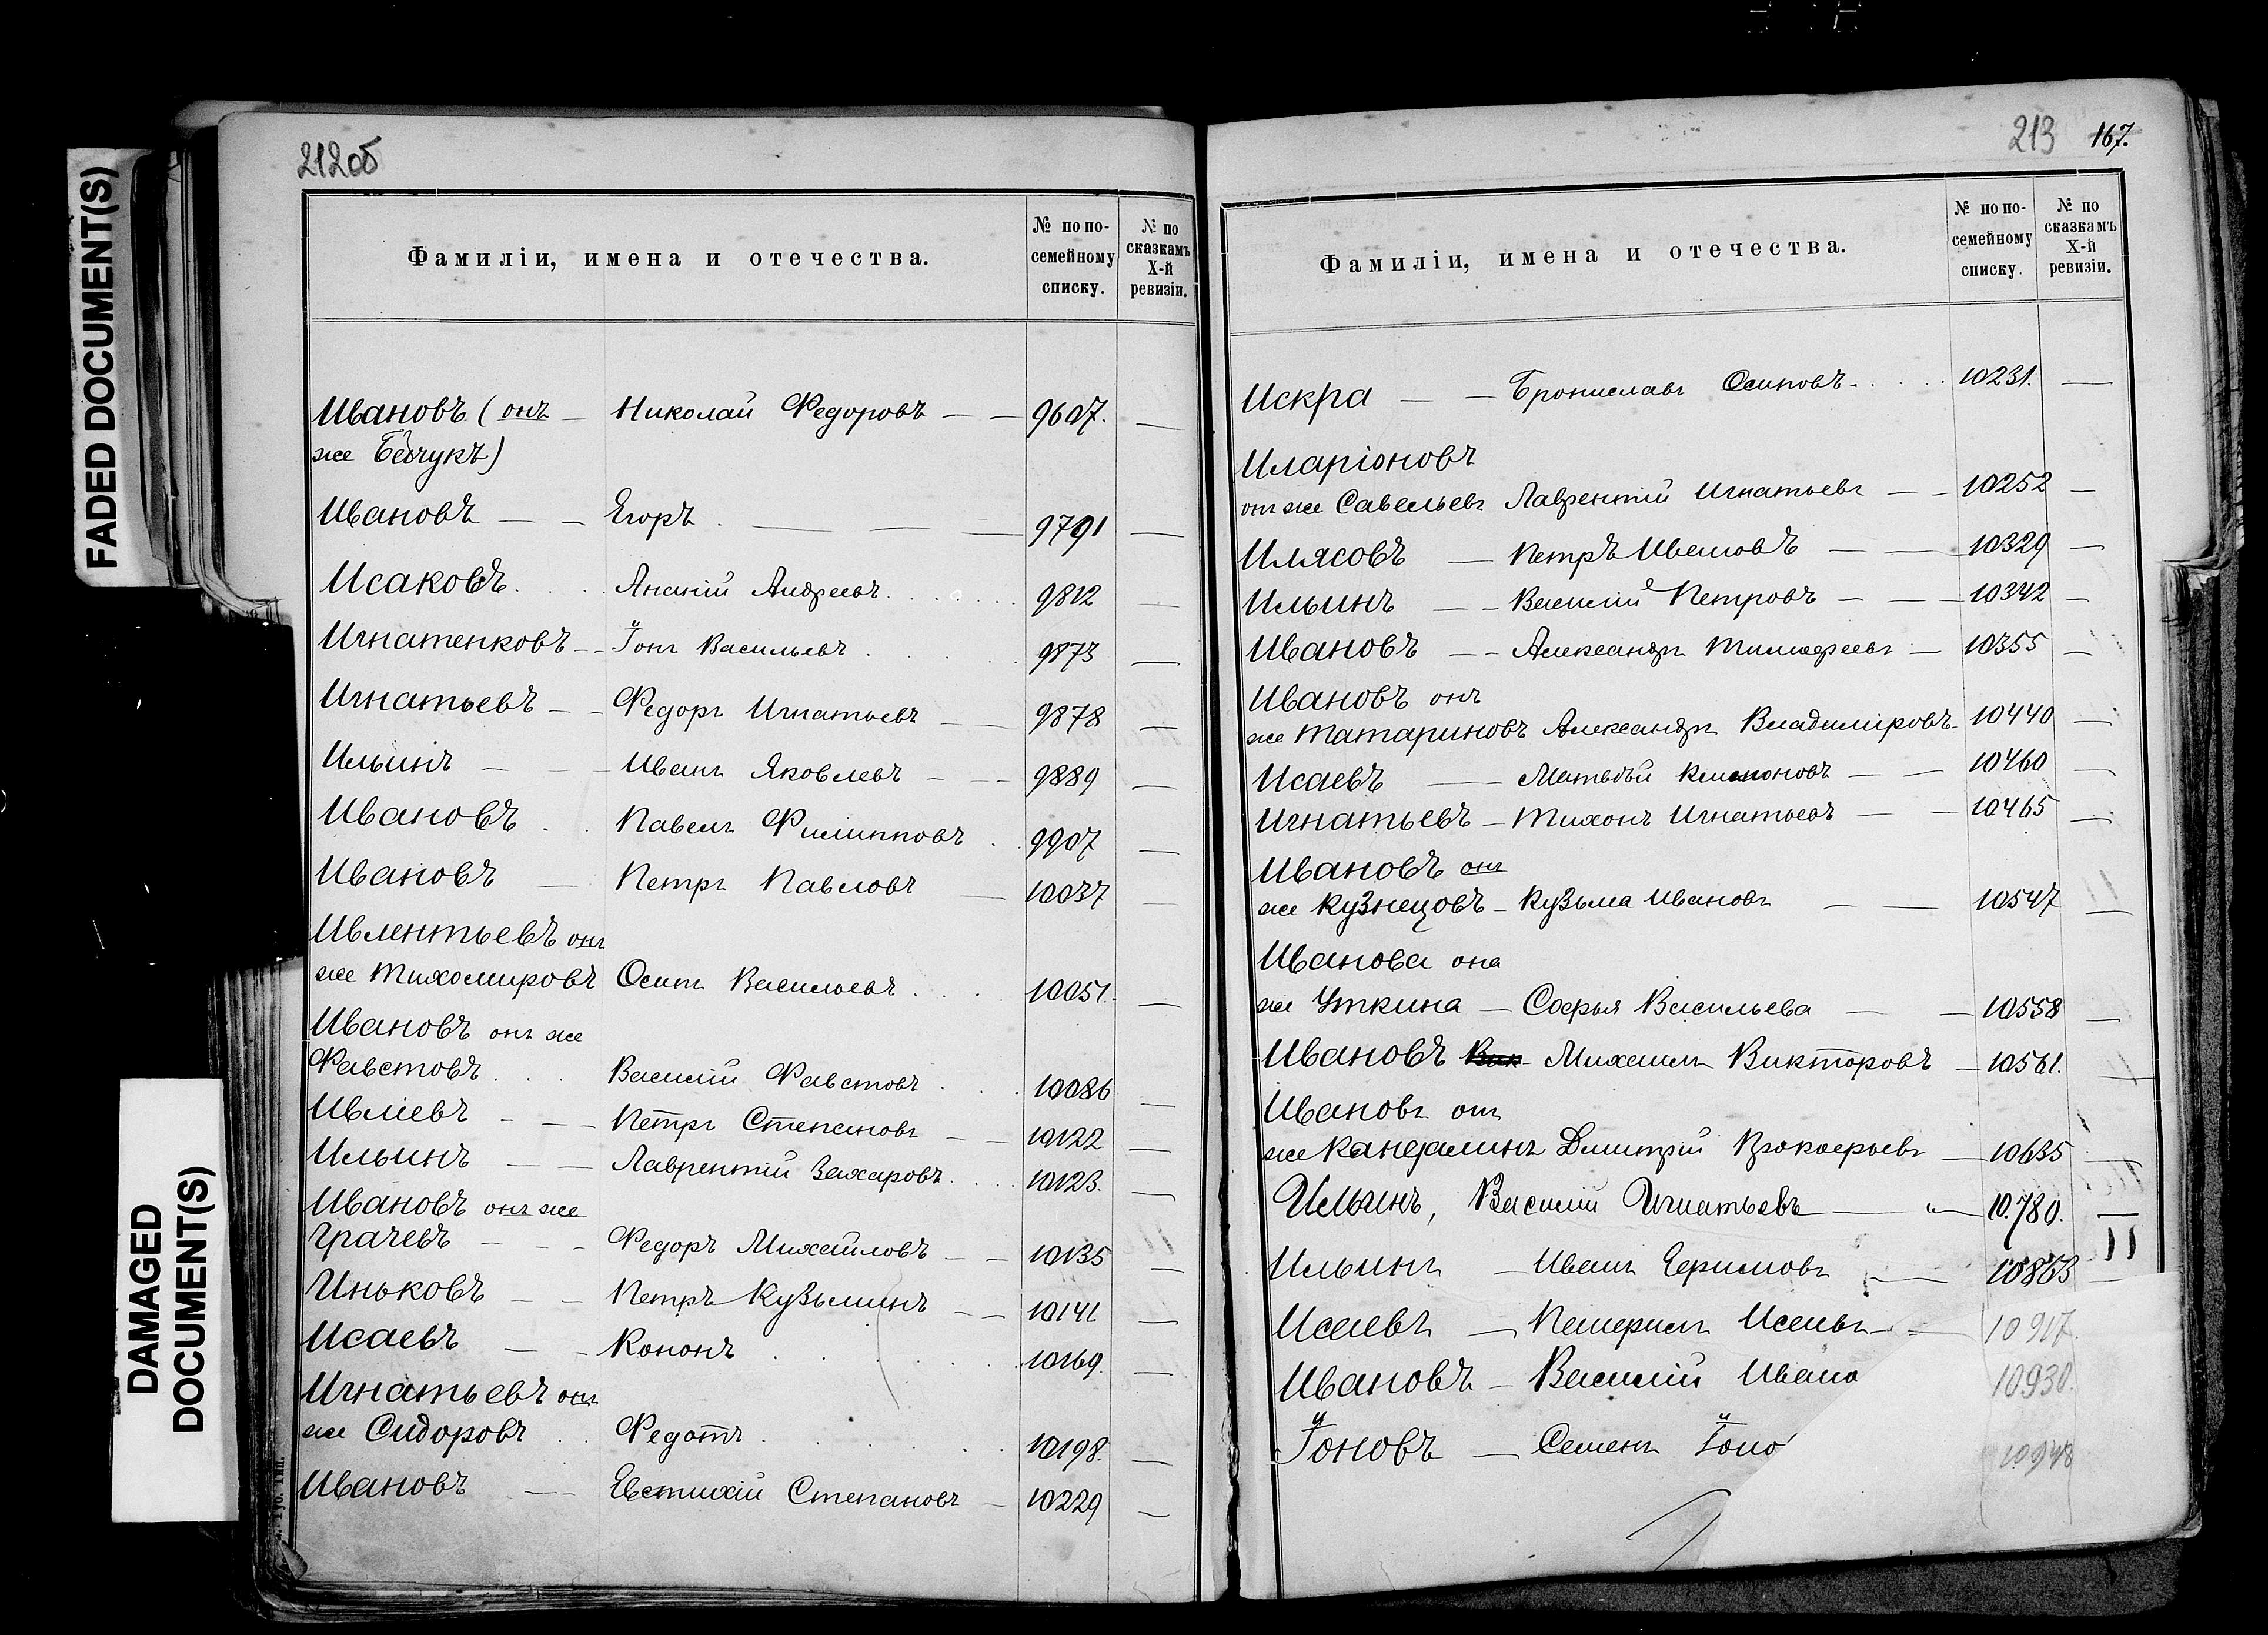 FADED DOCUMENT(S)
DAMAGED
DOCUMENT(S)
212об
Фамиліи, имена и отечества.
№ по по-
семейному
списку.
№ по
сказкамъ
X-й
ревизіи.
Ивановъ (онъ — Николай Федоровъ — — 9607. —
же)
Ивановъ — — Егоръ . — — — 9791 —
Исаковъ . . . Ананій Андреевъ . . . . . 9812 —
Игнатенковъ — — Іонъ Васильевъ . . . . 9873 —
Игнатьевъ — — Федоръ Игнатьевъ — — 9878 —
Ильинъ — — — Иванъ Яковлевъ — — — 9889 —
Ивановъ . . Павелъ Филипповъ . . 9907 —
Ивановъ — Петръ Павловъ — 10037 —
Ивлентьевъ онъ
же Тихомировъ Осипъ Васильевъ . . . 10051. —
Ивановъ онъ же
Фавстовъ . . . Василій Фавстовъ . . . 10086 —
Ивліевъ — — — Петръ Степановъ — — 10122 —
Ильинъ — — Лаврентій Захаровъ . . . 10123. —
Ивановъ онъ же
Грачевъ — — — Федоръ Михайловъ — — 10135 —
Иньковъ — — Петръ Кузьминъ — — 10141 —
Исаевъ — — Кононъ . . . . . . 10169. —
Игнатьевъ онъ
же Сидоровъ . . Федотъ . . . . . 10198. —
Ивановъ — — Евстихій Степановъ — 10229 —
213 167.
Фамиліи, имена и отечества.
№ по по-
семейному
списку.
№ по
сказкамъ
X-й
ревизіи.
Искра — — Брониславъ Осиповъ . . . . 10231. —
Иларіоновъ
онъ же Савельевъ Лаврентій Игнатьевъ — — 10252 —
Илясовъ — Петръ Ивановъ — — 10329 —
Ильинъ — — Василій Петровъ — — — 10342 —
Ивановъ — — Александръ Тимофеевъ — 10355 —
Ивановъ онъ
же Татариновъ Александръ Владиміровъ — 10440 —
Исаевъ — — Матвѣй — — 10460 —
Игнатьевъ — Тихонъ Игнатьевъ — — 10465 —
Ивановъ онъ
же Кузнецовъ — Кузьма Ивановъ — — 10547 —
Иванова она
же Уткина — Софья Васильева — — 10558 —
Ивановъ Вик — Михаилъ Викторовъ — 10561. —
Ивановъ онъ
же Кандалинъ Дмитрій Прокофьевъ — 10635 —
Ильинъ, Василій Игнатьевъ — „ — 10.780. —
Ильинъ — Иванъ Ефимовъ — — 10863 —
Исаевъ — Исаевъ — — 10917.
Ивановъ — Василій Ивано 10930.
Іоновъ — Семенъ Іоно 10948